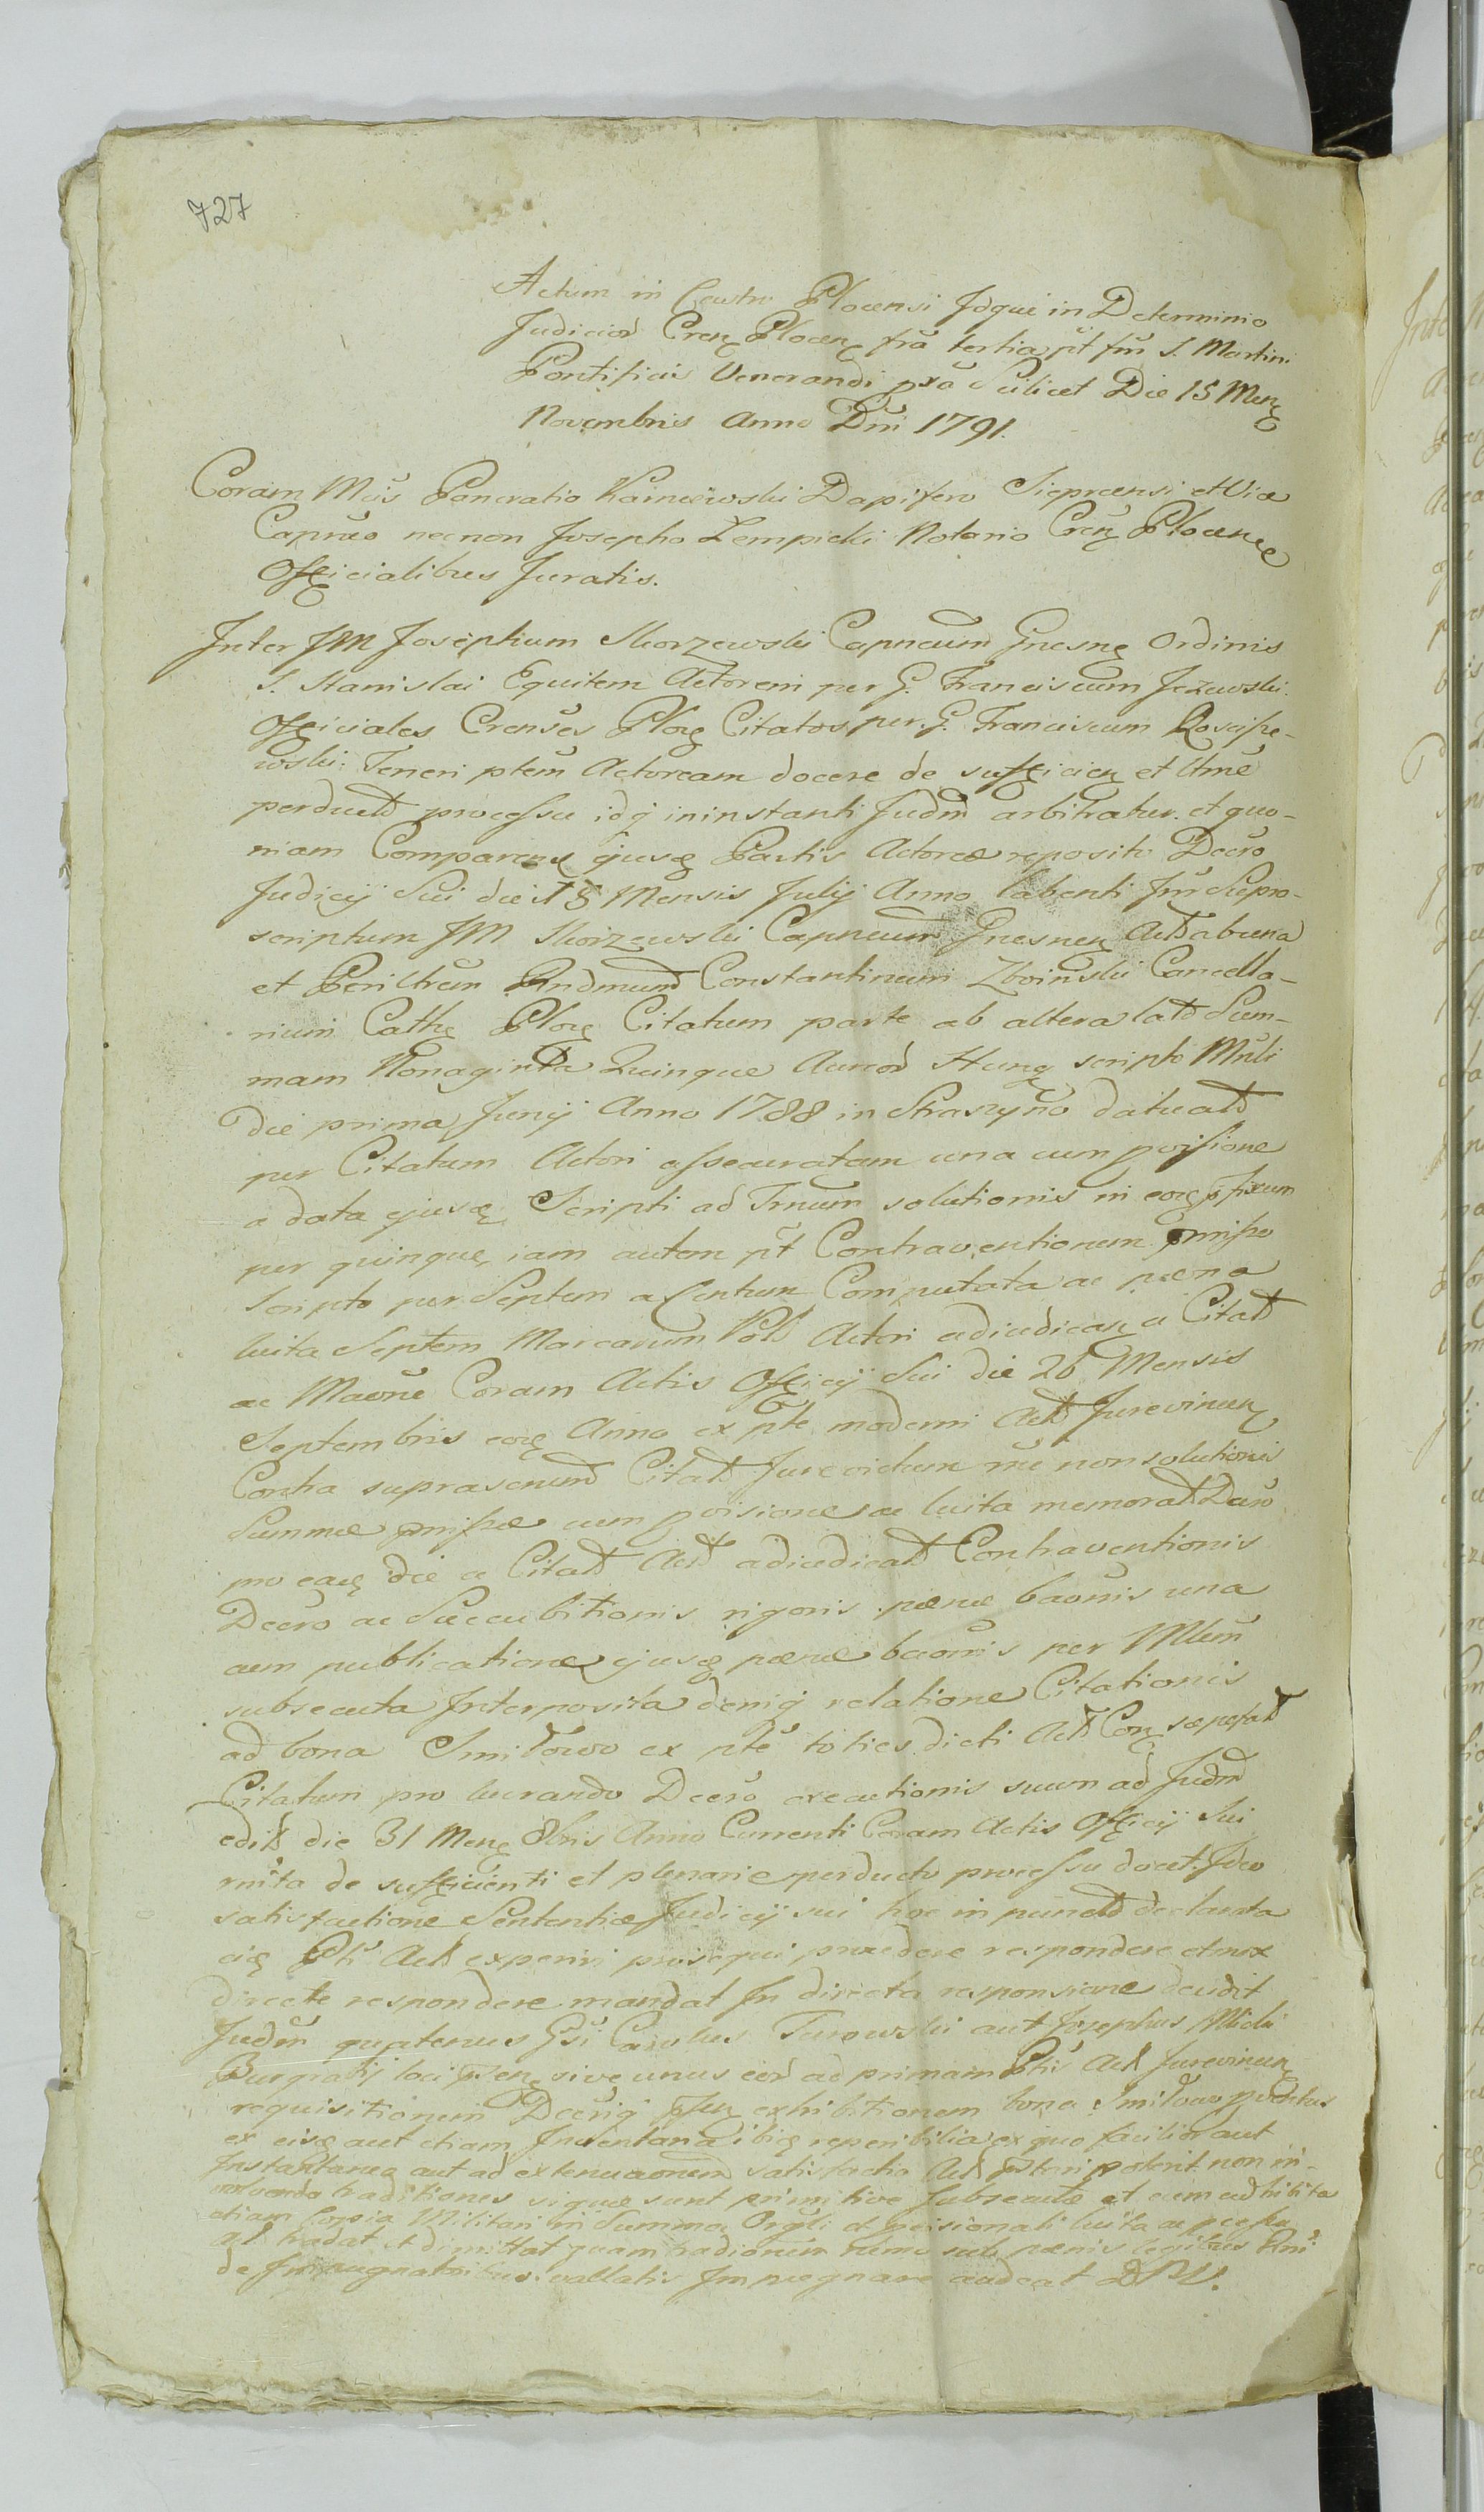 727
Actum in Castro Plocensi Idque in Determinio
Judicior Cren Plocen fra tertia pt fm S. Martini
Pontificis Venerandi pxa Scilicet Die 15 Men
Novembris Anno Dni 1791.
Coram Mcis Pancratio Karniewski Dapifero Sieprcensi et Vice
Capneo necnon Josepho Zempicki Notario Cren Plocense
Officialibus Juratis.
Inter JM Josephum Skorzewski Capneum Gnesn Ordinis
S. Stanislai Equitem Actorem per G. Franciscum Jezewski.
Officiales Crenses Ploc Citatos per G. Franciscum Rosciſze-
wski: Teneri ptem Actoream docere de sufficien et ltme
perduct proceſsu idq in instanti Judm arbitratur. et quo-
niam Comparens ejusq Partis Actoreæ reposito Decro
Judicij Sui die 15 Mensis Julij Anno labenti Inr Supra-
scriptum JM Skorzewski Capneum Gnesnen Act ab una
et Perilltrem Rndmum Constantinum Zboinski Cancella-
rium Cath Ploc Citatum parte ab altera lat Sum-
mam Nonaginta Quinque Aureor Hung scripto Mnli
die prima Junij Anno 1788 in Straszyno datuat
per Citatum Actori aſsecuratam una cum pviſione
a data ejusq Scripti ad Trnum solutionis in eoq pfixum
per quinque, iam autem pt Contraventionem pmiſso
scripto per Septem a Centum Computata ac pæna
luita Septem Marcarum Pol Actori adiudican a Citat
ac Maone Coram Actis Officij Sui die 26 Mensis
Septembris eoq Anno ex pte moderni Act Jurevincen
Contra suprascrium Citat Jurevictum rne non solutionis
Summæ pmiſsæ cum pvisione ac luita memorat Decro
pro eaq die a Citat Act adiudicat Contraventionis
Decro ac Succubitionis rigoris pænæ baonis una
cum publicatione ejusq pænæ baonis per Mlem
subsecuta Interposita deniq relatione Citationis
ad bona Smiłowo ex pte toties dicti Act Con sæpefat
Citatum pro lucrando Decro executionis suum ad Judm
edit die 31 Men 8bris Anno Currenti Coram Actis Officij Sui
rnita de sufficienti et plenarie perducto proceſsu docet. Ideo
satisfactione Sententiæ Judicij sui hoc in punct declarata
eiq Pti Act experiri prosequi procedere respondere et mox
directe respondere mandat In directa responsione decidit
Judm quatenus Gsi Carolus Turowski aut Josephus Milicki
Burgrabij loci psen sive unus eor ad primam Ptis Act Jurevincen
requisitionem Decriq psen exhibitionem bona Smiłowo
ex eisq aut etiam Inventaria ibiq reperibilia ex quo facilior aut
Instantanea aut ad extenuaonem satisfactio Act fieri poterit non in-
volvendo traditiones siquæ sunt primitive subsecutæ et cum adhibita
etiam Copia Militari in Summa Orgli et pvisionali luita ac pceſsu
Act tradat et dimittat quam tradionem nemo sub pænis legibus Rni
de Impugnatoribus vallatis Impugnare audeat DPV.